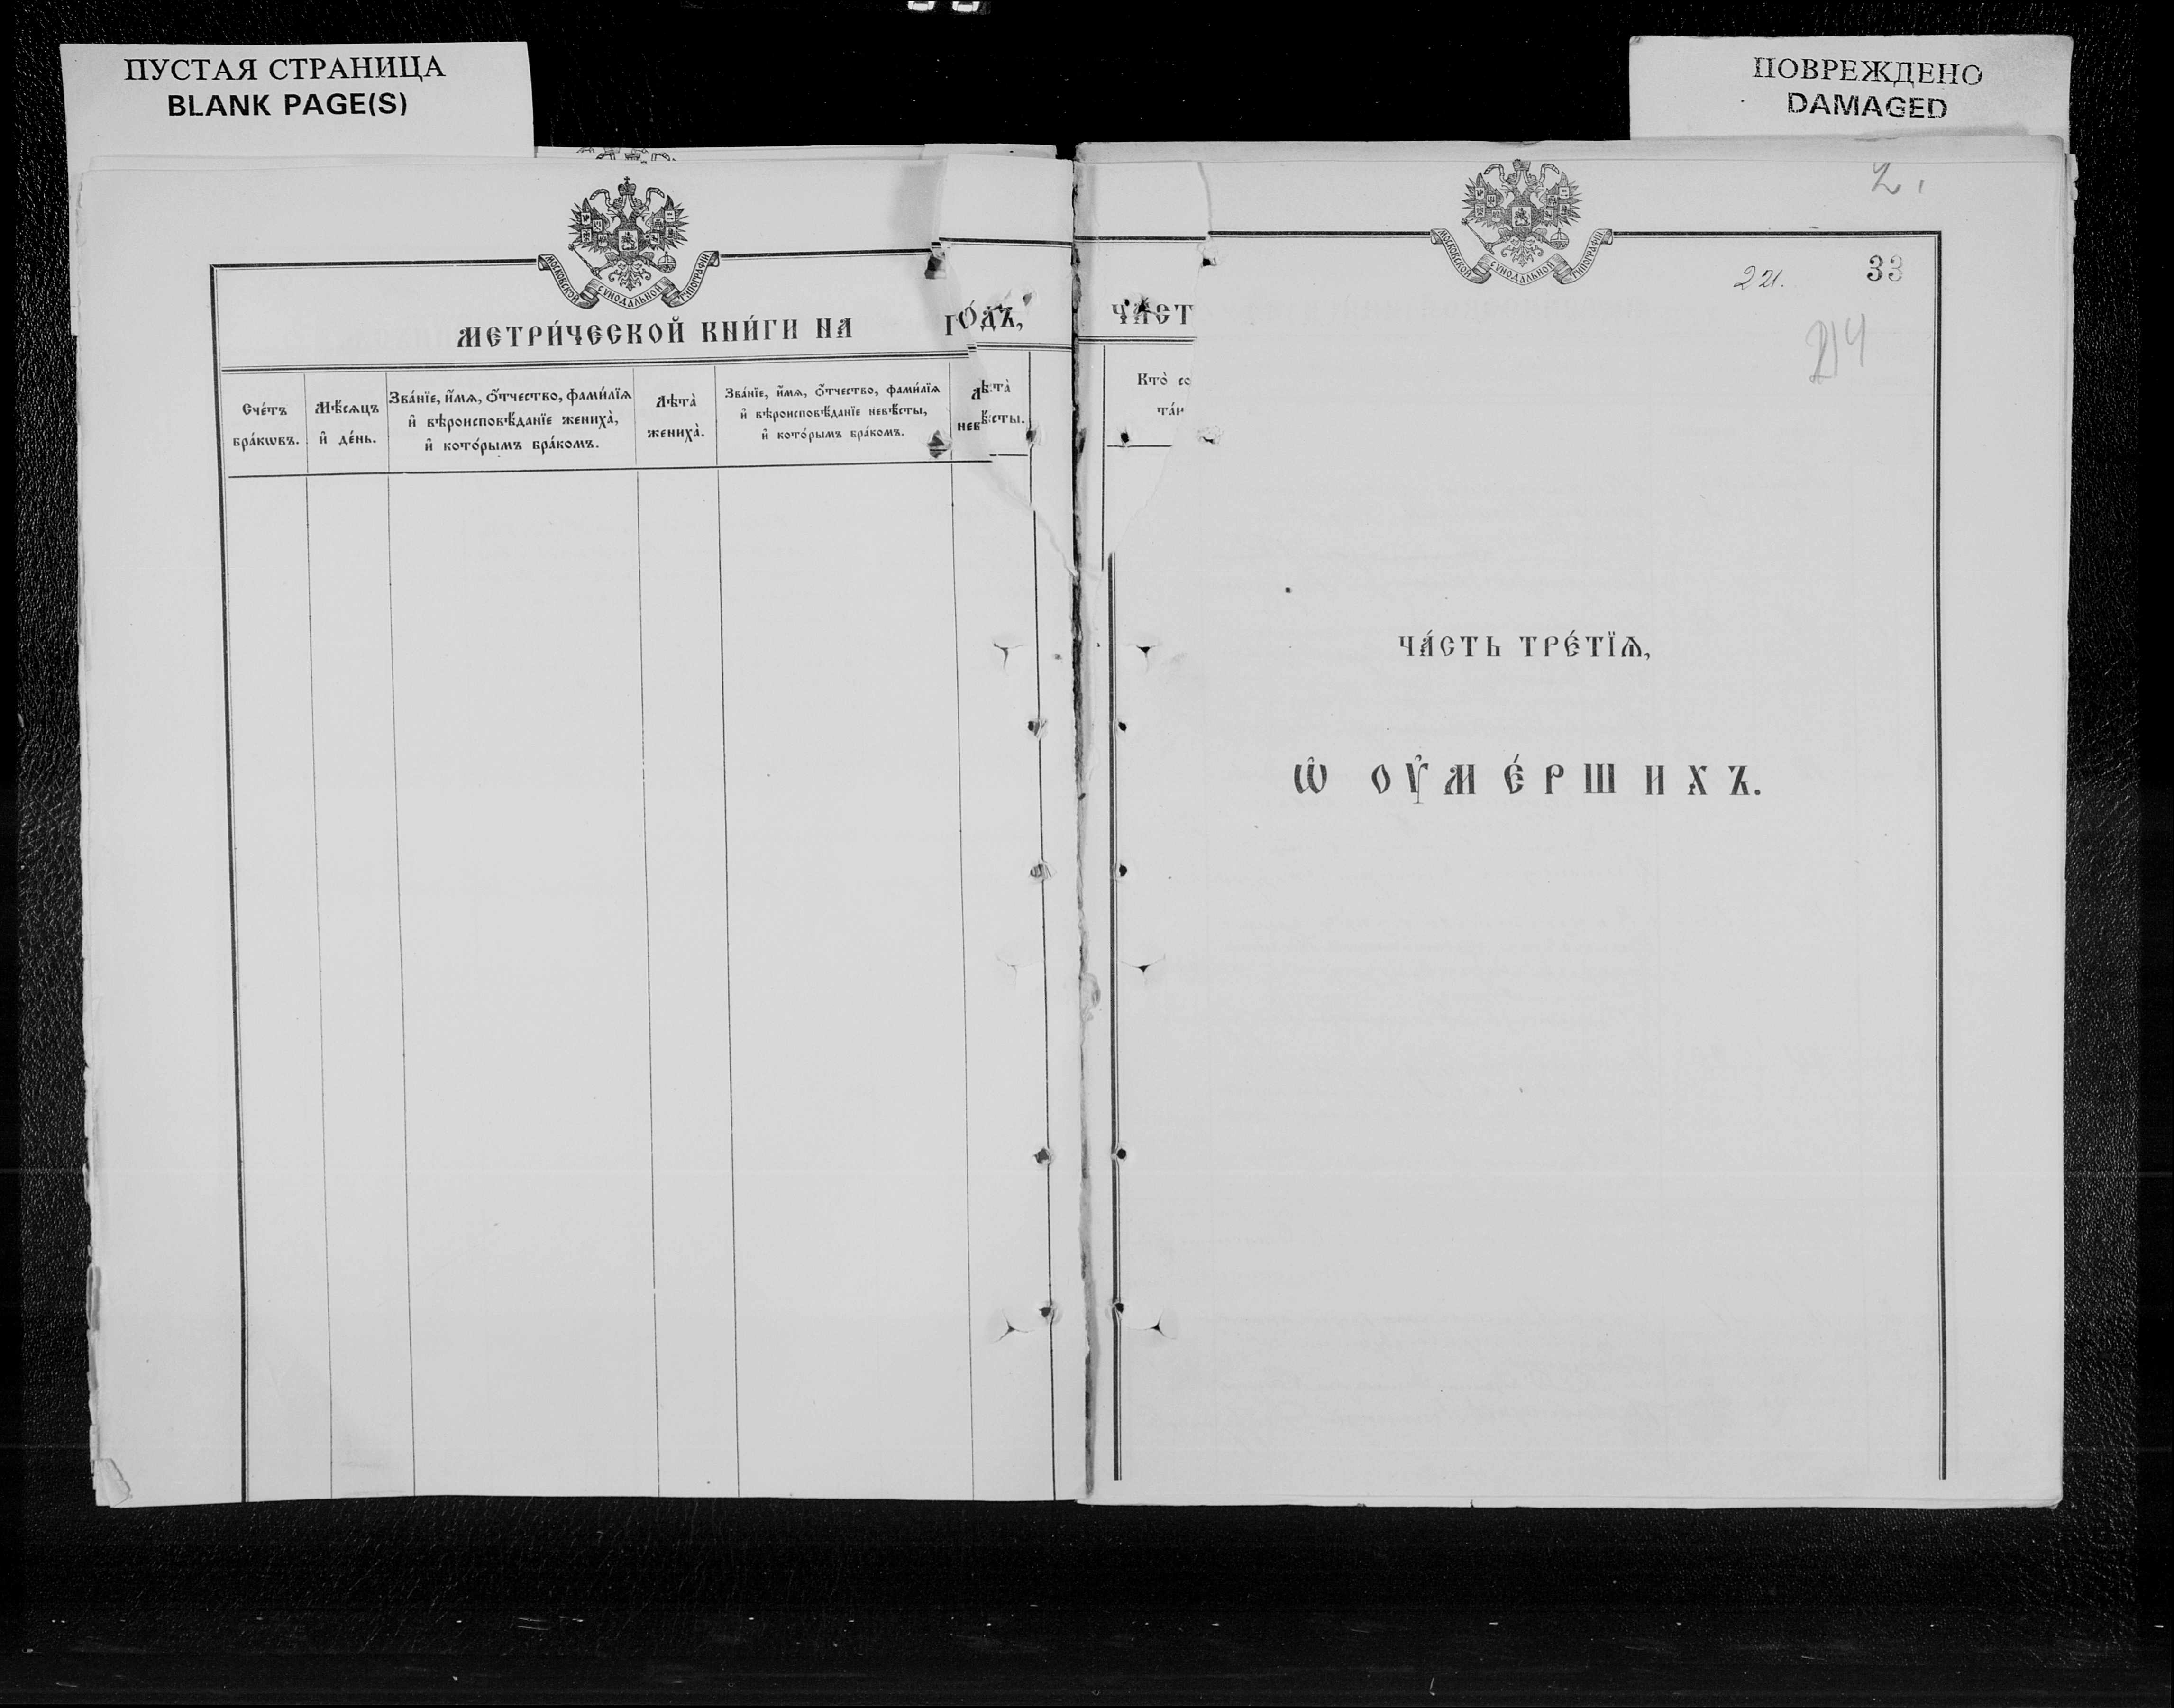 ПУСТАЯ СТРАНИЦА
BLANK PAGE(S)
ПОВРЕЖДЕНО
DAMAGED
МОСКОВСКОЙ СѴНОДАЛЬНОЙ ТИПОГРАФІИ
МЕТРИ́ЧЕСКОЙ КНИ́ГИ НА ГО́ДЪ,
Сче́тъ
бра́кѡвъ.
Мѣ́сѧцъ
и҆ де́нь.
Зва́нїе, и҆́мѧ, ѻ҆́тчество, фами́лїѧ
и҆ вѣроисповѣ́данїе жениха̀,
и҆ кото́рымъ бра́комъ.
Лѣта̀
жениха̀.
Зва́нїе, и҆́мѧ, ѻ҆́тчество, фами́лїѧ
и҆ вѣроисповѣ́данїе невѣ́сты,
и҆ кото́рымъ бра́комъ.
Лѣта̀
невѣ́сты.
ЧАСТ
Кто̀ со
та́и
2.
МОСКОВСКОЙ СѴНОДАЛЬНОЙ ТИПОГРАФІИ
221.
33
214
ЧА́СТЬ ТРЕ́ТЇѦ,
Ѡ҆ ОУ҆МЕ́РШИХЪ.